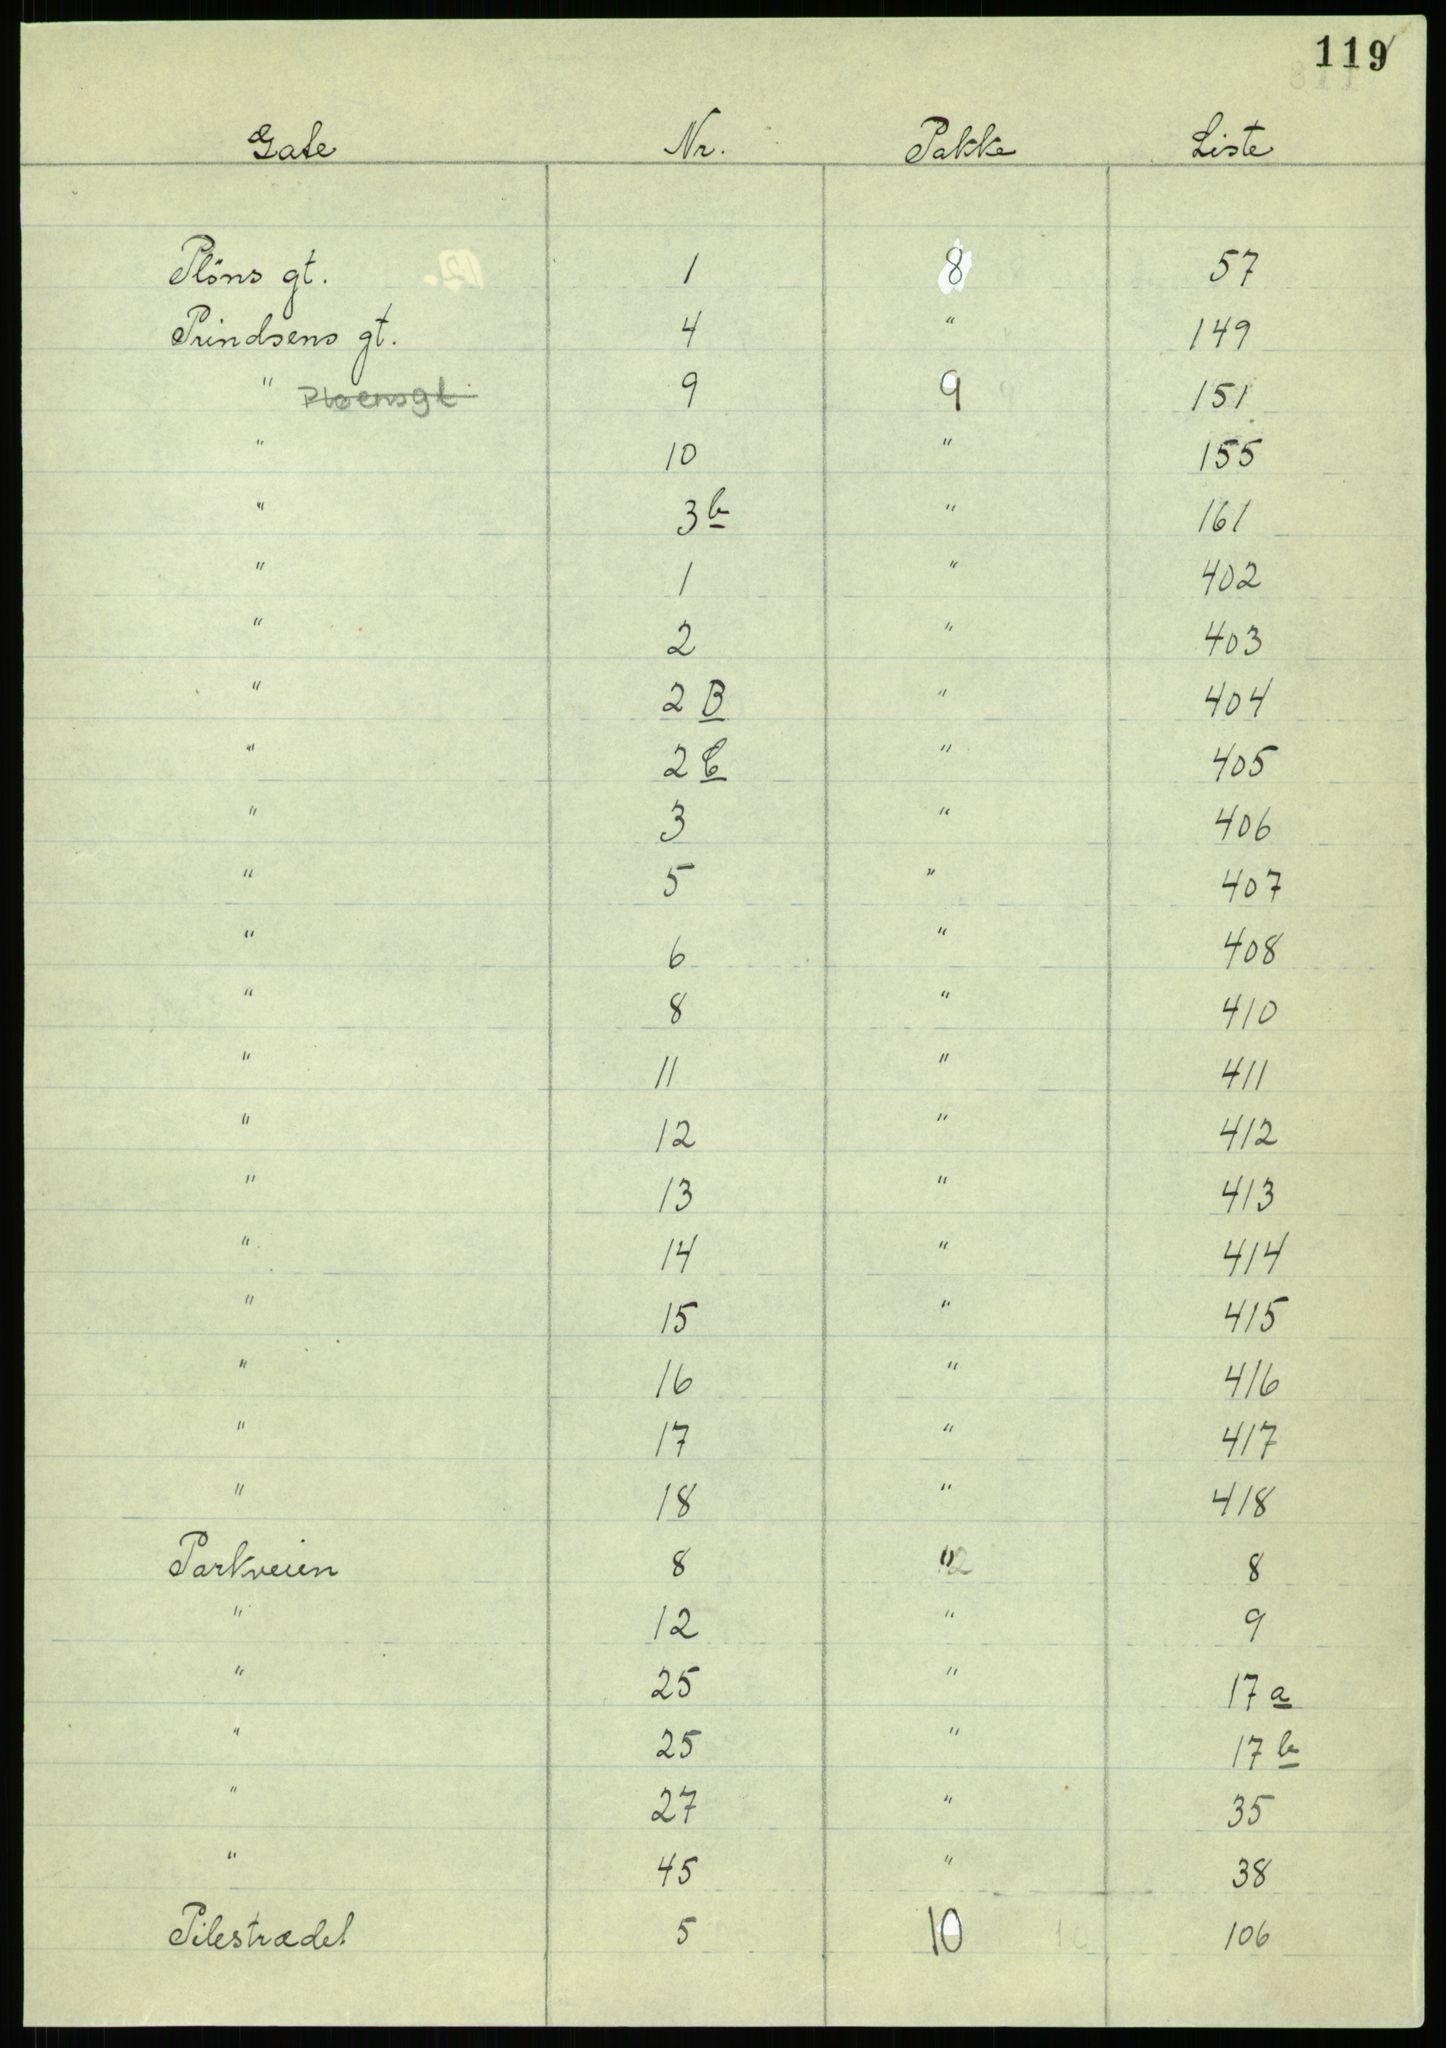 119
Gate Nr. Pakke Liste
Plöns gt. 1 8 57
Prindsens gt. 4 " 149
" Ploensgt 9 9 151
" 10 " 155
" 3b " 161
" 1 " 402
" 2 " 403
" 2 B " 404
" 2 C " 405
" 3 " 406
" 5 " 407
" 6 " 408
" 8 " 410
" 11 " 411
" 12 " 412
" 13 " 413
" 14 " 414
" 15 " 415
" 16 " 416
" 17 " 417
" 18 " 418
Parkveien 8 " 8
" 12 " 9
" 25 " 17 a
" 25 " 17 b
" 27 " 35
" 45 " 38
Pilestrædet 5 10 106